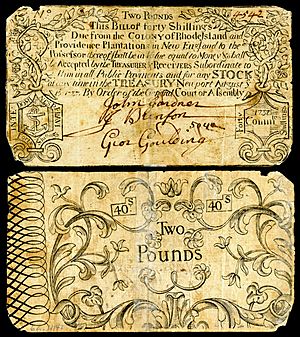 TWO POUNDS
This Bill of forty Shillings
Due from the Colony of Rhode Island and
Providence Plantations in New England to the
Possessor thereof shall be in value equal to Money & shall be
Accepted by the TREASURER & RECEIVERS Subordinate to
Him in all Public Payments and for any STOCK
at any time in the TREASURY Newport August
By Order of the Court or Assembly
5042
John Gardner
Geo: Goulding
5042
Forty
Shillings
40 S
40 S
TWO
POUNDS